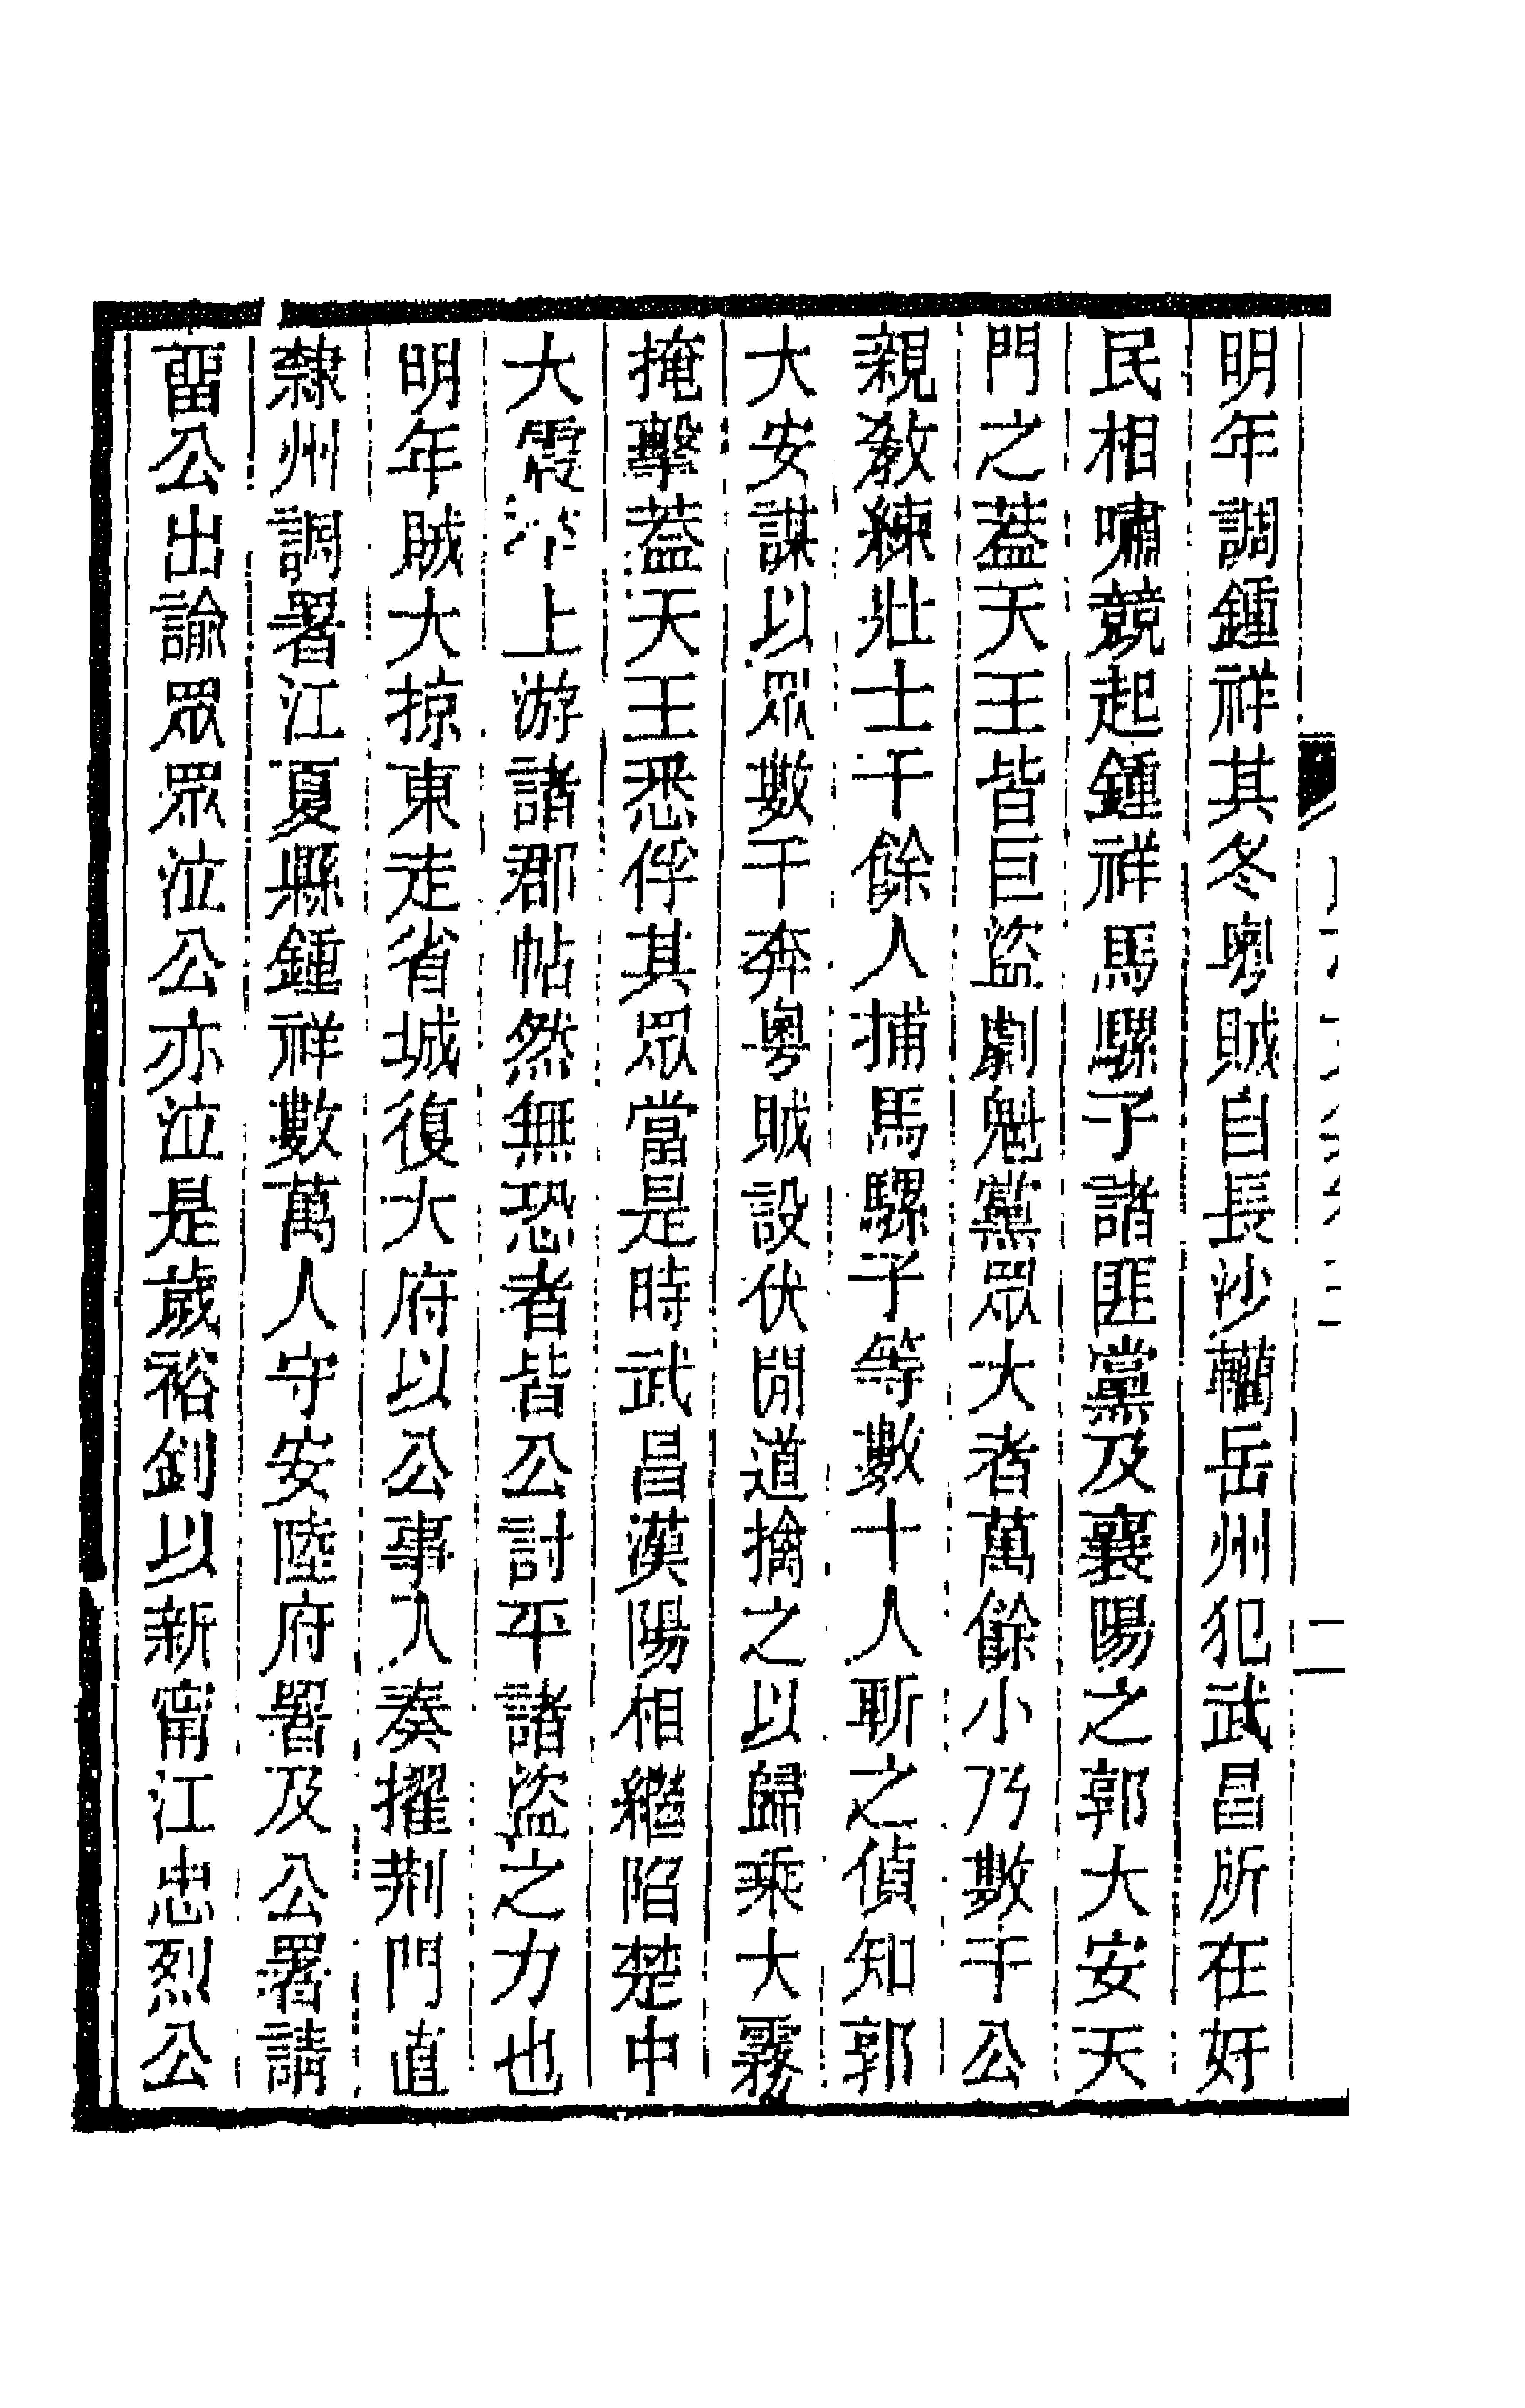 明年調鍾祥其冬粤賊自長沙躪岳州犯武昌所在奸
民相嘯競起鍾祥馬騾子諸匪黨及襄陽之郭大安天
門之蓋天王皆巨盜劇魁黨眾大者萬餘小乃數千公
親敎練壯士千餘人捕馬騾子等數十人斬之偵知郭
大安謀以眾數千奔粤賊設伏閒道擒之以歸乘大霧
掩擊蓋天王悉俘其眾當是時武昌漢陽相繼陷楚中
大震 上游諸郡帖然無恐者皆公討平諸盜之力也
明年賊大掠東走省城復大府以公事入奏擢荆門直
隸州調署江夏縣鍾祥數萬人守安陸府署及公署請
畱公出諭眾眾泣公亦泣是歲裕釗以新甯江忠烈公
二